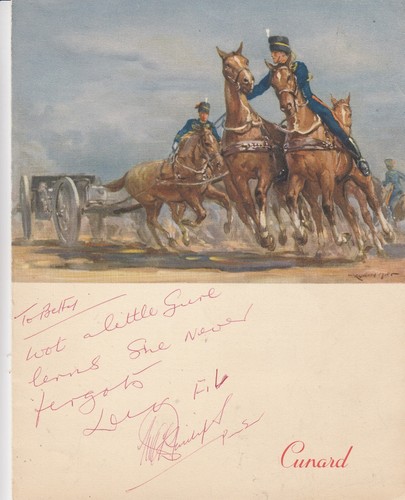 To Betty.
Wot a little Gurl
lerns She Never
fergots
Fil
Cunard